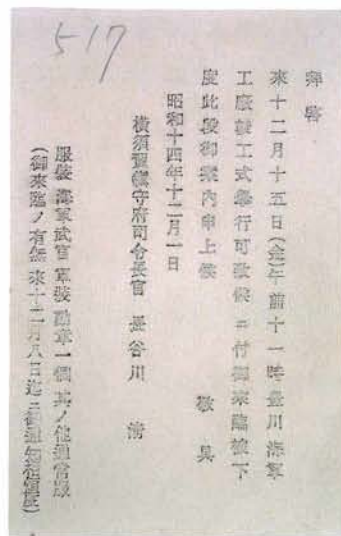 517
拜啓
來十二月十五日(金)午前十一時豊川海軍
工廠竣工式擧行可致候ニ付御來臨被下
度此段御案内申上候
敬具
昭和十四年十二月一日
横須賀鎭守府司令長官 長谷川 清
服裝 海軍武官 軍裝 勳章一個 其ノ他通常服
(御來臨ノ有無 來十二月八日迄ニ御通知相煩度)